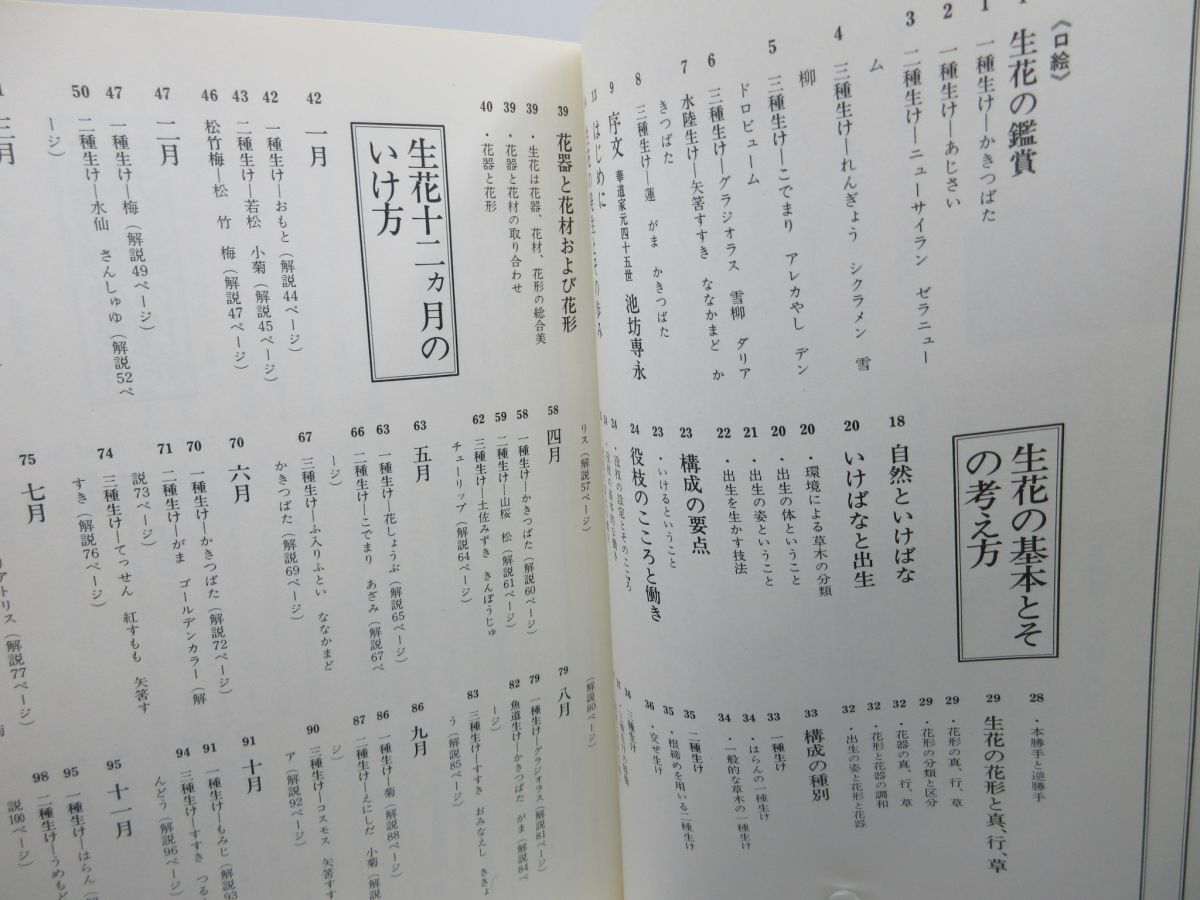 《口絵》
生花の鑑賞
1 一種生け―かきつばた
2 一種生け―あじさい
3 二種生け―ニューサイラン ゼラニュー
ム
4 三種生け―れんぎょう シクラメン 雪
柳
5 三種生け―こでまり アレカやし デン
ドロビューム
6 三種生け―グラジオラス 雪柳 ダリア
7 水陸生け―矢筈すすき ななかまど か
きつばた
8 三種生け―蓮 がま かきつばた
9 序文 華道家元四十五世 池坊専永
13 はじめに
生花の基本とそ
の考え方
18 自然といけばな
20 いけばなと出生
20 ・環境による草木の分類
20 ・出生の体ということ
21 ・出生の姿ということ
22 ・出生を生かす技法
23 構成の要点
23 ・いけるということ
24 役枝のこころと働き
24 ・役枝の設定とそのこころ
28 ・本勝手と逆勝手
29 生花の花形と真、行、草
29 ・花形の真、行、草
29 ・花形の分類と区分
32 ・花器の真、行、草
32 ・花形と花器の調和
32 ・出生の姿と花形と花器
33 構成の種別
33 一種生け
34 ・はらんの一種生け
34 ・一般的な草木の一種生け
35 二種生け
35 ・根締めを用いる二種生け
36 ・交ぜ生け
36 三種生け
39 花器と花材および花形
39 ・生花は花器、花材、花形の総合美
39 ・花器と花材の取り合わせ
40 ・花器と花形
生花十二ヵ月の
いけ方
42 一月
42 一種生け―おもと(解説44ページ)
43 二種生け―若松 小菊(解説45ページ)
46 松竹梅―松 竹 梅(解説47ページ)
47 二月
47 一種生け―梅(解説49ページ)
50 二種生け―水仙 さんしゅゆ(解説52ペ
ージ)
三月
リス(解説57ページ)
58 四月
58 一種生け―かきつばた(解説60ページ)
59 二種生け―山桜 松(解説61ページ)
62 三種生け―土佐みずき きんぽうじゅ
チューリップ(解説64ページ)
63 五月
63 一種生け―花しょうぶ(解説65ページ)
66 二種生け―こでまり あざみ(解説67ペ
ージ)
67 三種生け―ふ入りふとい ななかまど
かきつばた(解説69ページ)
70 六月
70 一種生け―かきつばた(解説72ページ)
71 二種生け―がま ゴールデンカラー(解
説73ページ)
74 三種生け―てっせん 紅すもも 矢筈す
すき(解説76ページ)
75 七月
リアトリス(解説77ページ)
(解説80ページ)
79 八月
79 一種生け―グラジオラス(解説81ページ)
82 魚道生け―かきつばた がま(解説84ペ
ージ)
83 三種生け―すすき おみなえし ききょ
う(解説85ページ)
86 九月
86 一種生け―菊(解説88ページ)
87 二種生け―えにしだ 小菊(解説
ジ)
90 三種生け―コスモス 矢筈すす
ア(解説92ページ)
91 十月
91 一種生け―もみじ(解説93
94 三種生け―すすき つる
んどう(解説96ページ)
95 十一月
95 一種生け―はらん(解
98 二種生け―うめもど
説100ページ)